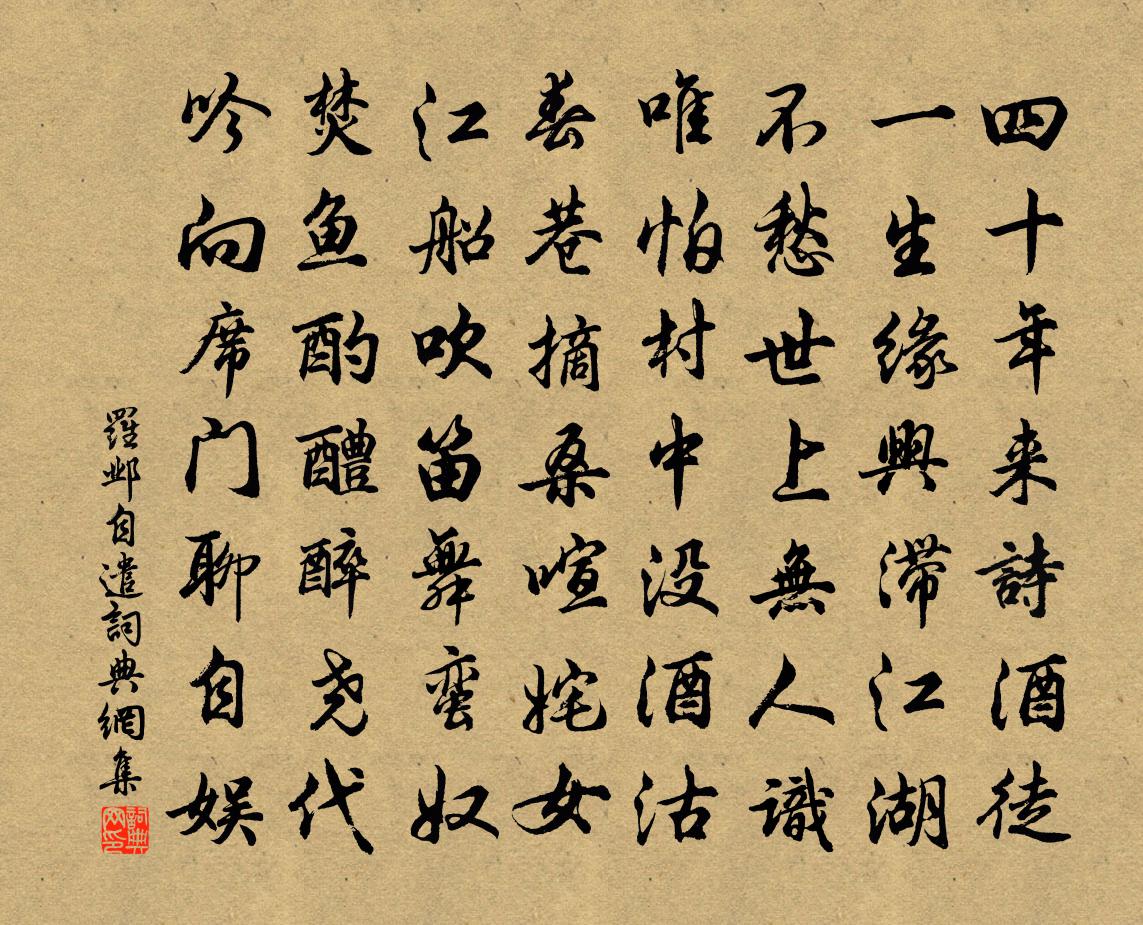 四十年来詩酒徒
一生緣興滯江湖
不愁世上無人識
唯怕村中没酒沽
春巷摘桑喧姹女
江船吹笛舞蛮奴
焚鱼酌醴醉尧代
吟向席门聊自娱
羅邺自遣詞典網集
詞典网印